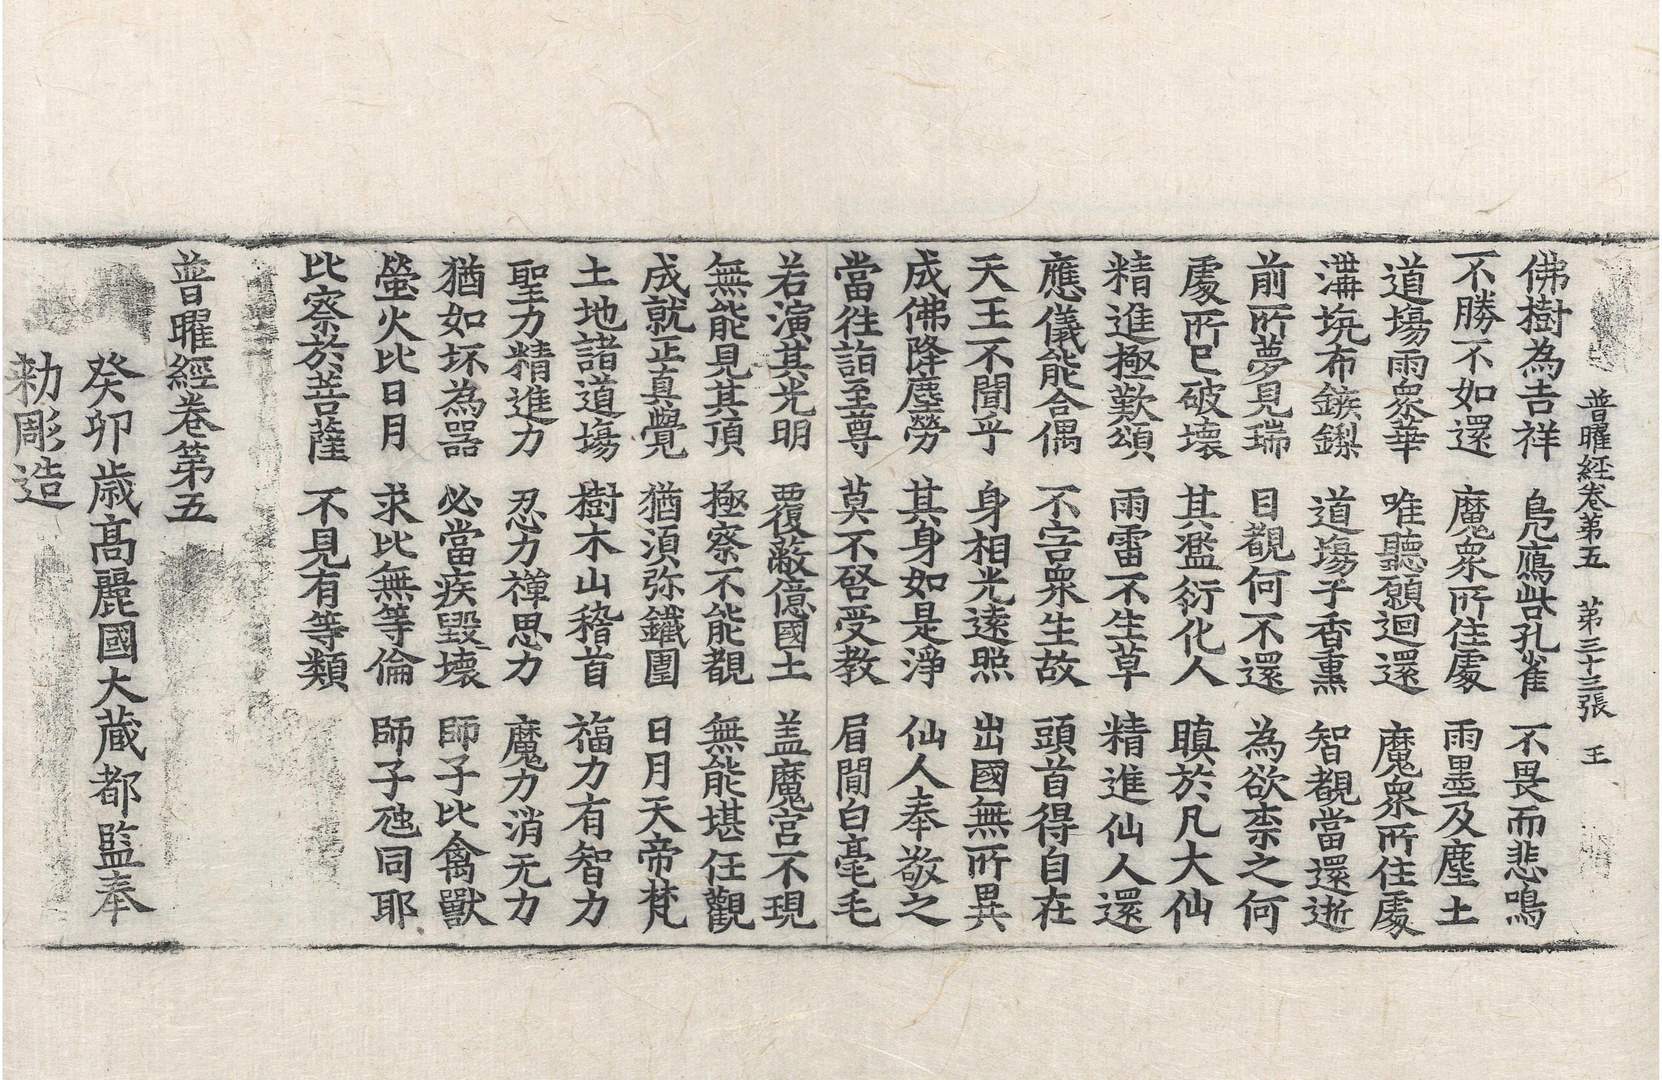 普曜經卷第五 第三十三張 王
佛樹為吉祥 鳧鴈咎孔雀 不畏而悲鳴
不勝不如還 魔衆所住處 雨墨及塵土
道場雨衆華 唯聽願迴還 魔衆所住處
溝坑布鏃鏁 道場子香熏 智覩當還逝
前所夢見瑞 目覩何不還 為欲柰之何
處所已破壞 其濫衍化人 瞋於凡大仙
精進極歎頌 雨雷不生草 精進仙人還
應儀能合偶 不害衆生故 頭首得自在
天王不聞乎 身相光遠照 出國無所異
成佛降塵勞 其身如是淨 仙人奉敬之
當往詣至尊 莫不啓受教 眉間白毫毛
若演其光明 覆蔽億國土 盖魔宮不現
無能見其頂 極察不能覩 無能堪任觀
成就正真覺 猶湏弥鐵圍 日月天帝梵
土地諸道場 樹木山稽首 福力有智力
聖力精進力 忍力禪思力 魔力消无力
猶如坏為器 必當疾毀壞 師子比禽獸
螢火比日月 求比無等倫 師子虺同耶
比察於菩薩 不見有等類
普曜經卷第五
癸卯歳高麗國大藏都監奉
勑彫造